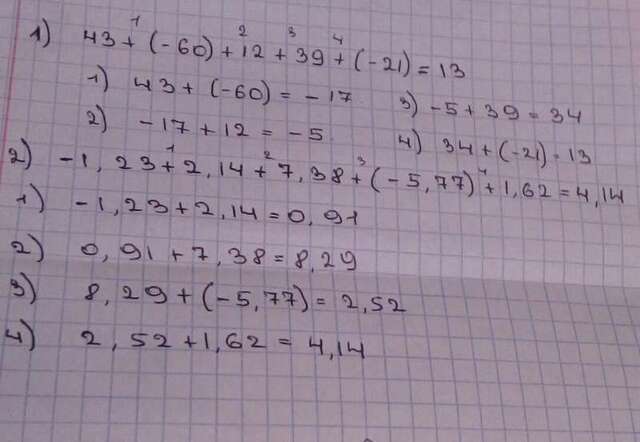 1) 43 + (-60) + 12 + 39 + (-21) = 13
1 2 3 4
1) 43 + (-60) = -17
3) -5 + 39 = 34
2) -17 + 12 = -5
4) 34 + (-21) = 13
2) -1,23 + 2,14 + 7,38 + (-5,77) + 1,62 = 4,14
1 2 3 4
1) -1,23 + 2,14 = 0,91
2) 0,91 + 7,38 = 8,29
3) 8,29 + (-5,77) = 2,52
4) 2,52 + 1,62 = 4,14